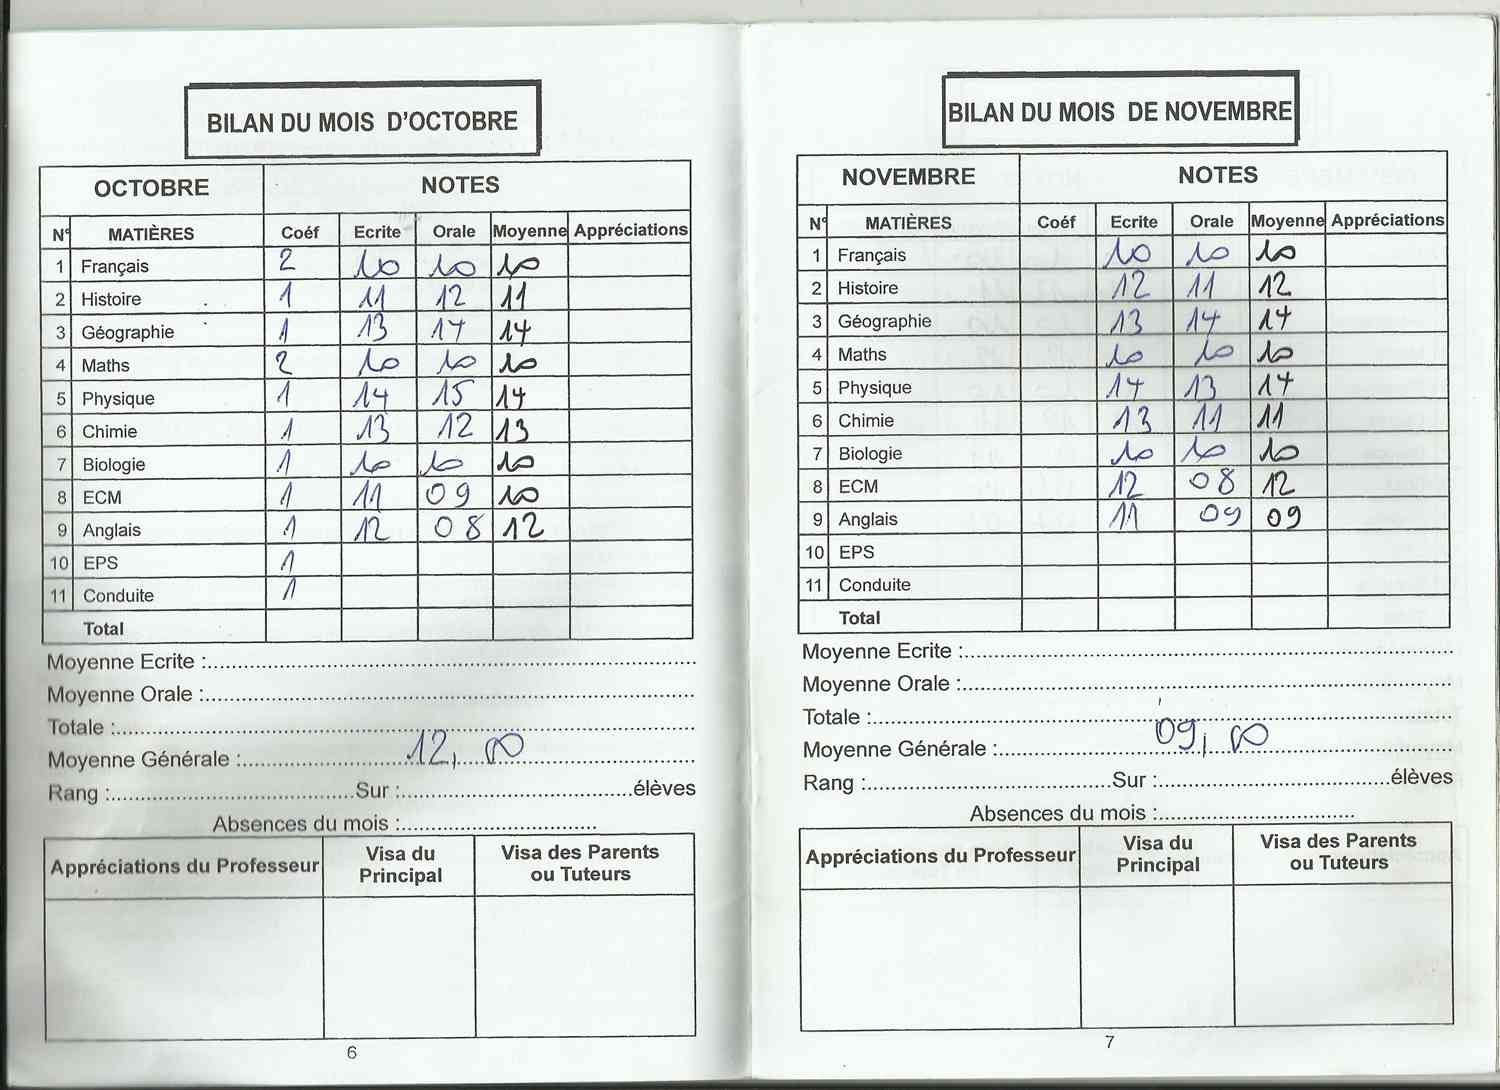 BILAN DU MOIS D'OCTOBRE
OCTOBRE NOTES
N° MATIÈRES Coéf Ecrite Orale Moyenne Appréciations
1 Français 2 10 10 10
2 Histoire 1 11 12 11
3 Géographie 1 13 14 14
4 Maths 2 10 10 10
5 Physique 1 14 15 14
6 Chimie 1 13 12 13
7 Biologie 1 10 10 10
8 ECM 1 11 09 10
9 Anglais 1 12 08 12
10 EPS 1
11 Conduite 1
Total
Moyenne Ecrite :
Moyenne Orale :
Totale :
Moyenne Générale : 12,00
Rang : Sur : élèves
Absences du mois :
Appréciations du Professeur Visa du Principal Visa des Parents ou Tuteurs
6
BILAN DU MOIS DE NOVEMBRE
NOVEMBRE NOTES
N° MATIÈRES Coéf Ecrite Orale Moyenne Appréciations
1 Français 10 10 10
2 Histoire 12 11 12
3 Géographie 13 14 14
4 Maths 10 10 10
5 Physique 14 13 14
6 Chimie 13 11 11
7 Biologie 10 10 10
8 ECM 12 08 12
9 Anglais 11 09 09
10 EPS
11 Conduite
Total
Moyenne Ecrite :
Moyenne Orale :
Totale :
Moyenne Générale : 09,00
Rang : Sur : élèves
Absences du mois :
Appréciations du Professeur Visa du Principal Visa des Parents ou Tuteurs
7